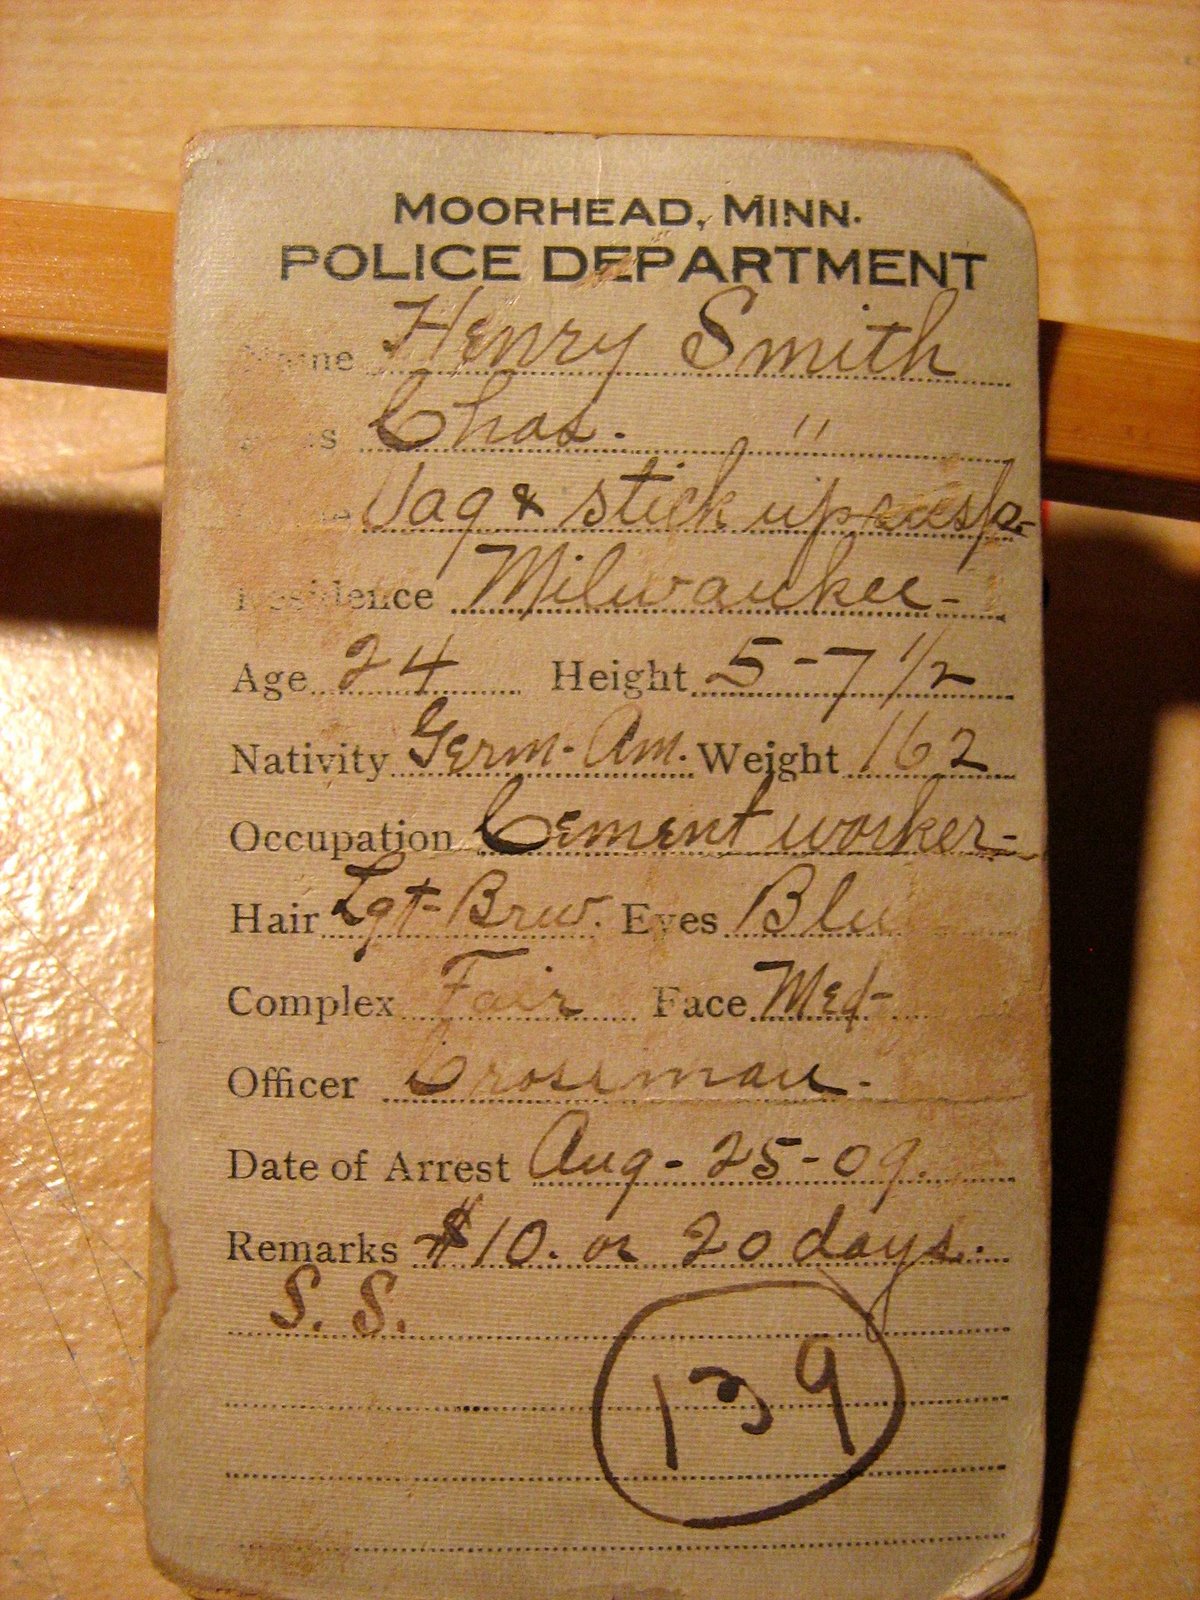 MOORHEAD, MINN.
POLICE DEPARTMENT
Name Henry Smith
Chas. "
Vag & stick up susp-
Residence Milwaukee-
Age 24 Height 5-7 1/2
Nativity Germ-Am. Weight 162
Occupation Cement worker-
Hair Lgt-Brw. Eyes Blu
Complex Fair Face Med-
Officer Crossman-
Date of Arrest Aug-25-09.
Remarks $10. or 20 days.
S. S.
139